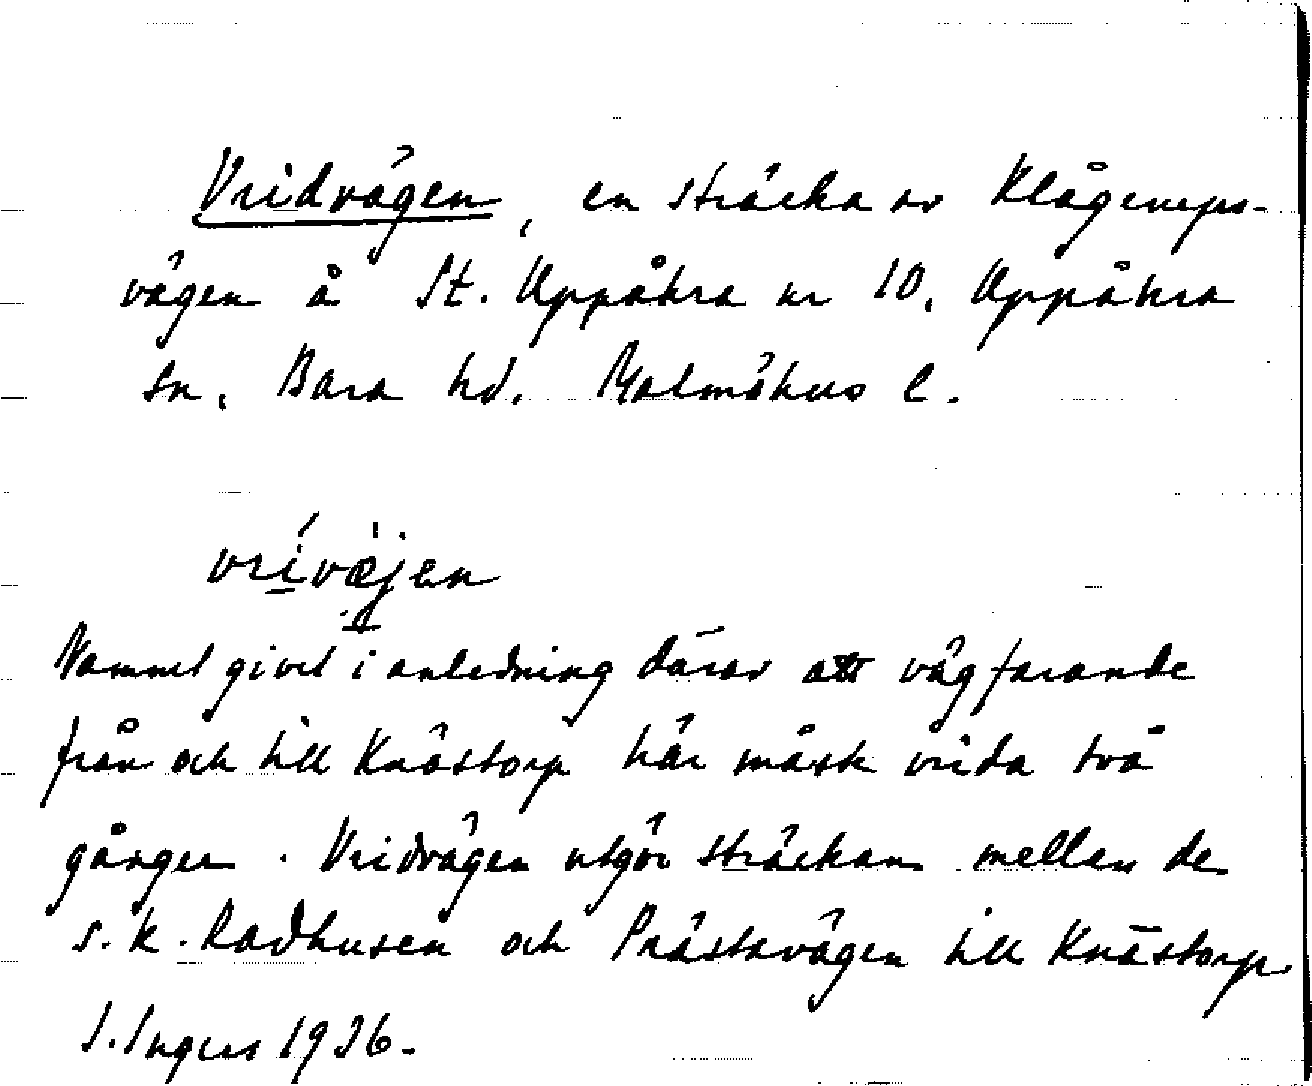 Vridvägen, en sträcka av Klågerups-
vägen å St. Uppåkra nr 10, Uppåkra
sn, Bara hd, Malmöhus l.
vrivæjen
Namnet givet i anledning därav att vägfarande
från och till Knästorp här måste vrida två
gånger. Vridvägen utgör sträckan mellan de
s.k. Radhusen och Prästavägen till Knästorp
I. Ingers 1936.